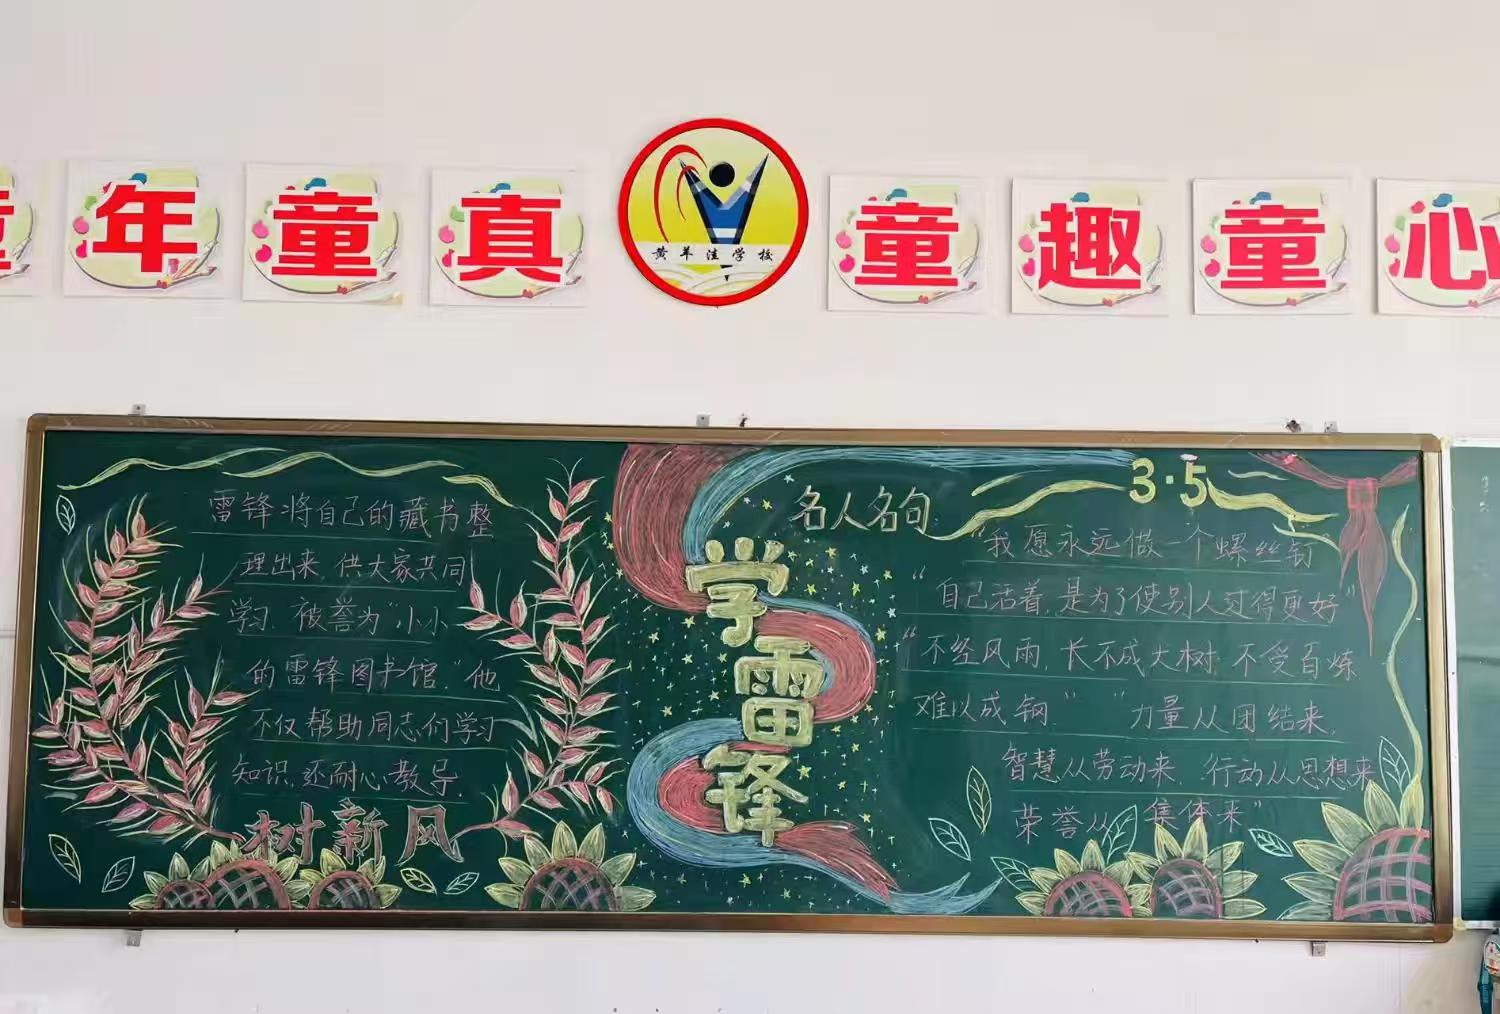 童年童真
黄羊洼学校
童趣童心
雷锋将自己的藏书整
理出来,供大家共同
学习.被誉为"小小
的雷锋图书馆."他
不仅帮助同志们学习
知识,还耐心教导.
树新风
学雷锋
名人名句
3·5
"我愿永远做一个螺丝钉
"自己活着,是为了使别人过得更好"
"不经风雨,长不成大树,不受百炼
难以成钢." "力量从团结来,
智慧从劳动来.行动从思想来
荣誉从集体来"